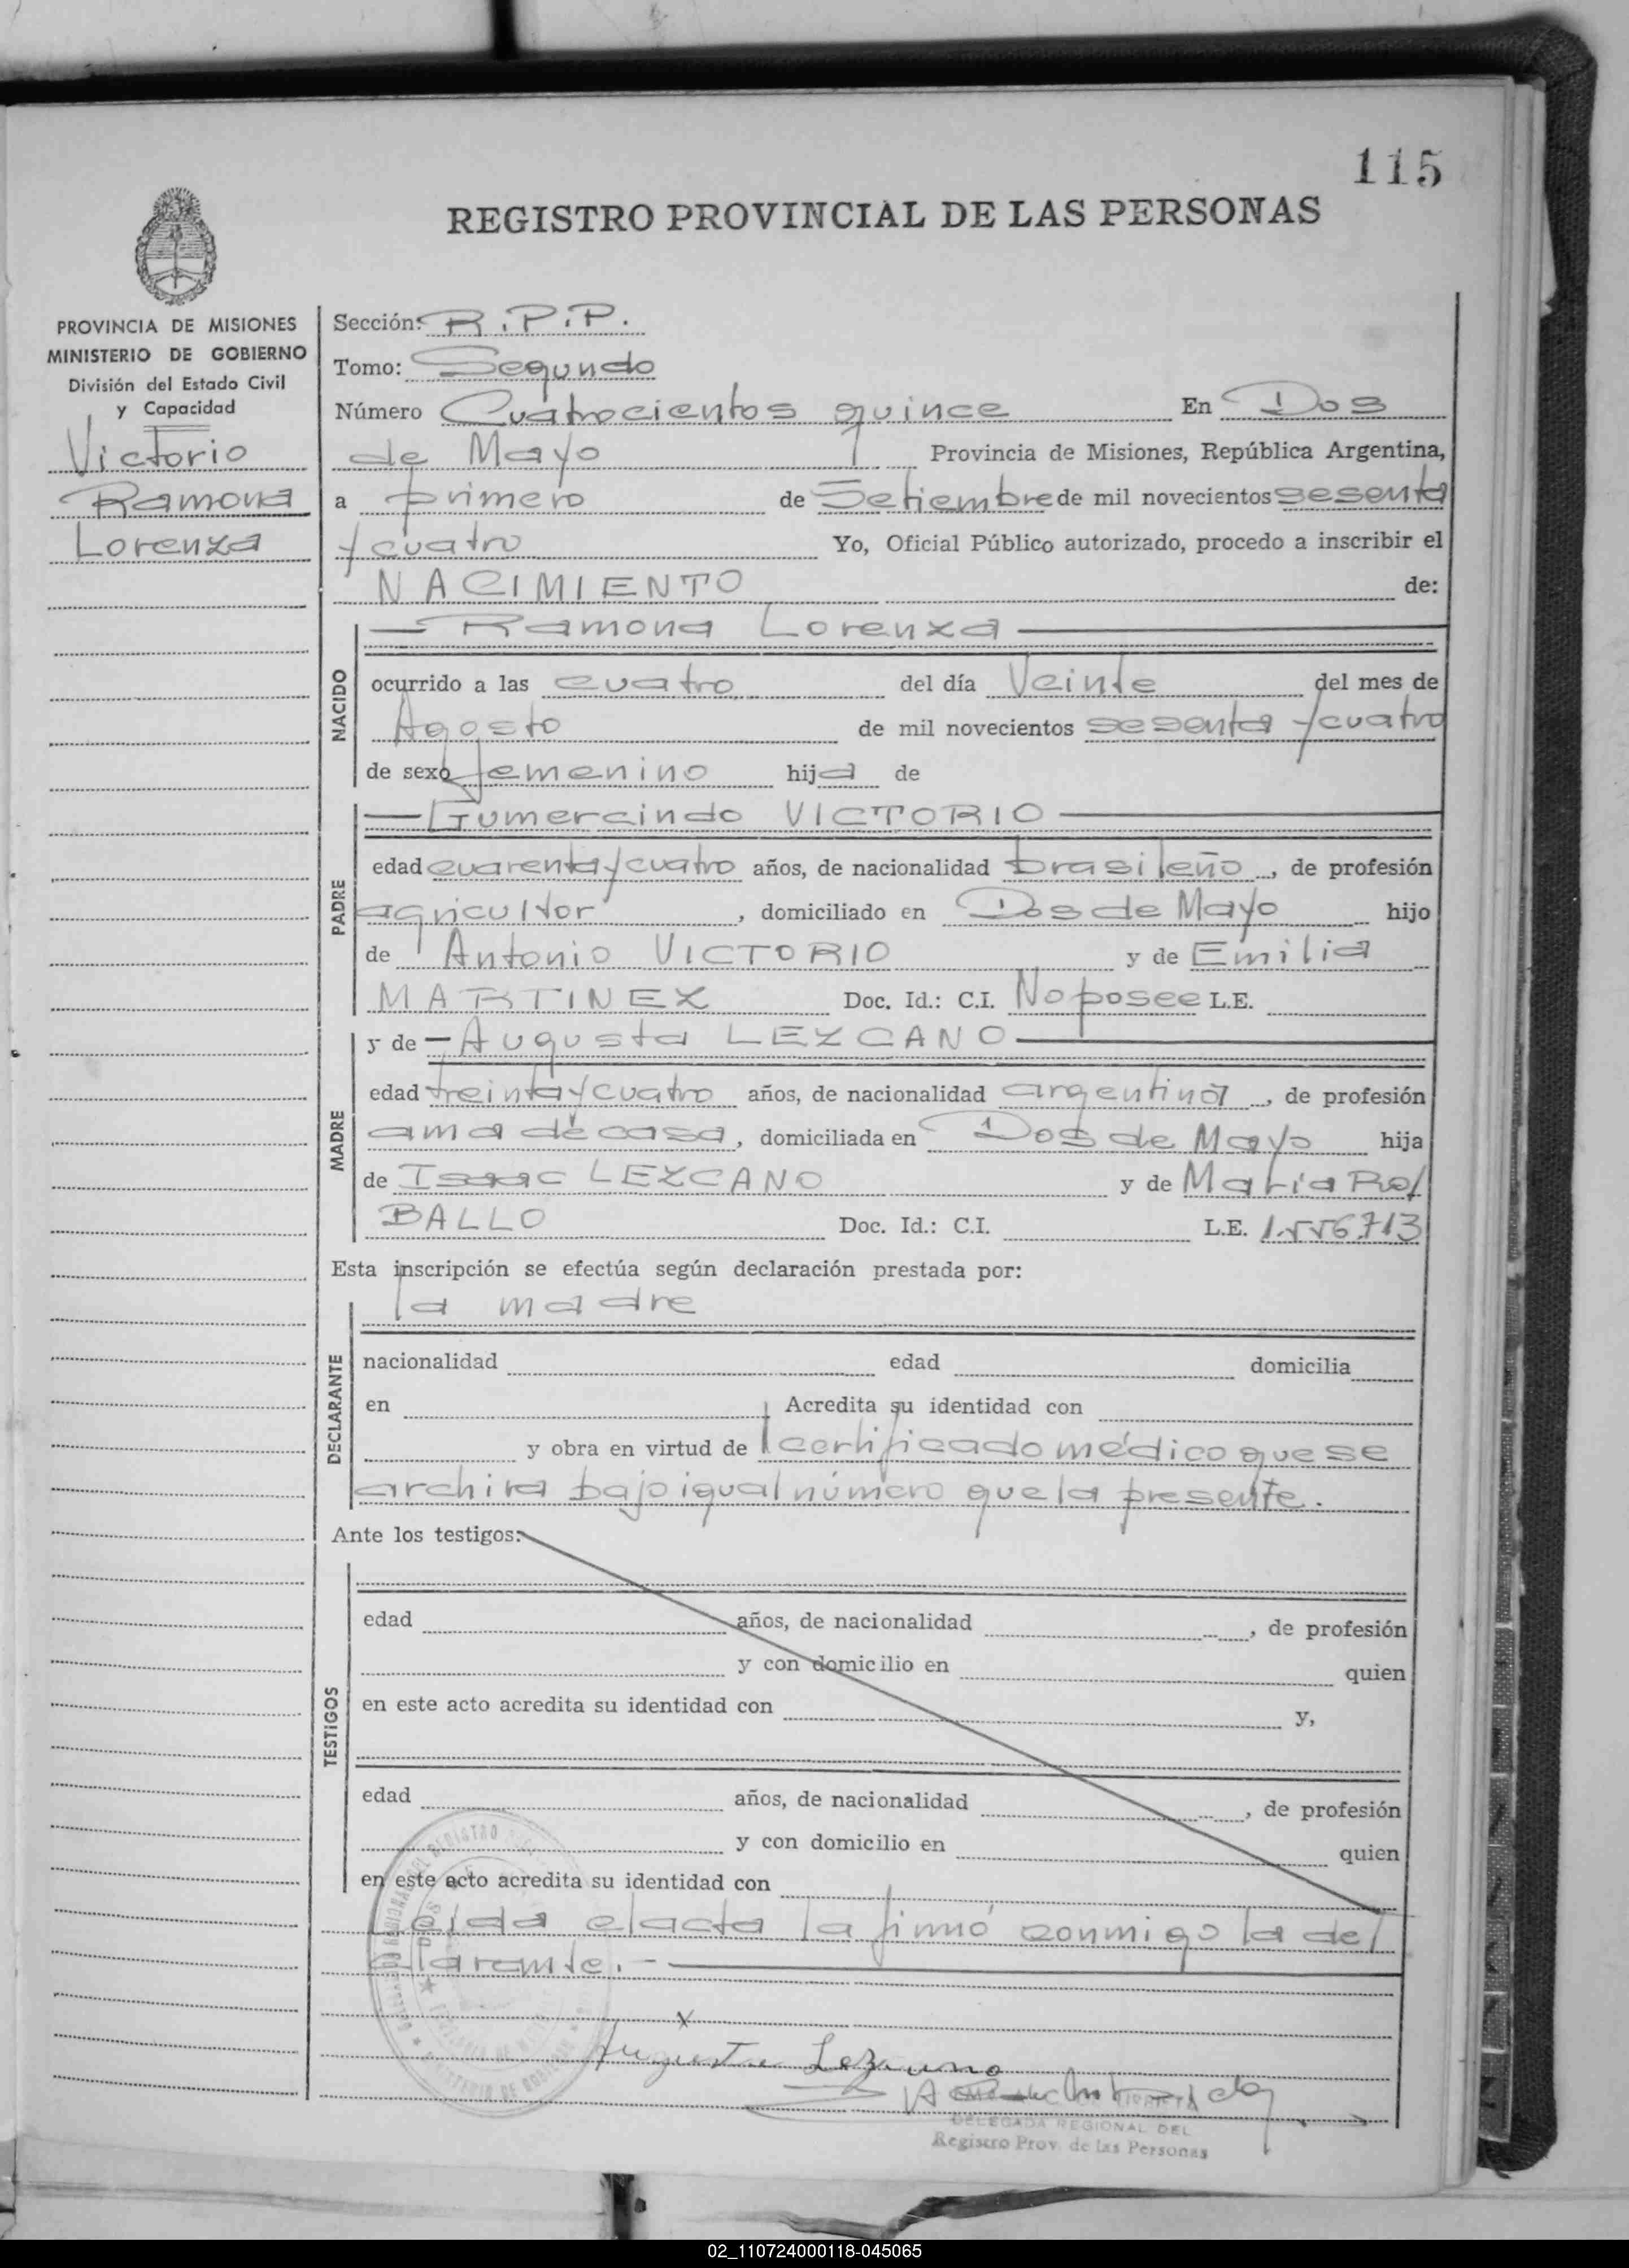 115
REGISTRO PROVINCIAL DE LAS PERSONAS
PROVINCIA DE MISIONES
MINISTERIO DE GOBIERNO
División del Estado Civil
y Capacidad
Victorio
Ramona
Lorenza
Sección: R.P.P.
Tomo: Segundo
Número Cuatrocientos quince En Dos
de Mayo Provincia de Misiones, República Argentina,
a primero de Setiembre de mil novecientos sesenta
y cuatro Yo, Oficial Público autorizado, procedo a inscribir el
NACIMIENTO de:
NACIDO
— Ramona Lorenza —
ocurrido a las cuatro del día Veinte del mes de
Agosto de mil novecientos sesenta y cuatro
de sexo femenino hija de
PADRE
— Gumercindo VICTORIO —
edad cuarenta y cuatro años, de nacionalidad brasileño, de profesión
agricultor, domiciliado en Dos de Mayo hijo
de Antonio VICTORIO y de Emilia
MARTINEZ Doc. Id.: C.I. No posee L.E.
MADRE
y de — Augusta LEZCANO —
edad treinta y cuatro años, de nacionalidad argentina, de profesión
ama de casa, domiciliada en Dos de Mayo hija
de Isaac LEZCANO y de María
BALLO Doc. Id.: C.I. L.E. 1.556.713
Esta inscripción se efectúa según declaración prestada por:
DECLARANTE
la madre
nacionalidad edad domicilia
en Acredita su identidad con
y obra en virtud de certificado médico que se
archiva bajo igual número que la presente.
Ante los testigos:
TESTIGOS
edad años, de nacionalidad , de profesión
y con domicilio en quien
en este acto acredita su identidad con y,
edad años, de nacionalidad , de profesión
y con domicilio en quien
en este acto acredita su identidad con
Leída el acta la firmó conmigo la de
clarante.-
x
Augusta Lezcano
DELEGADA REGIONAL DEL
Registro Prov. de las Personas
02_110724000118-045065